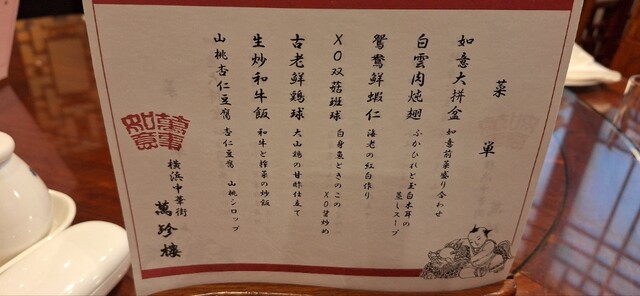 菜單
如意大拼盆
如意前菜盛り合わせ
白雲肉炖翅
ふかひれと玉白木耳の
蒸しスープ
鴛鴦鮮蝦仁
海老の紅白作り
XO双菇班球
白身魚ときのこの
XO醤炒め
古老鮮鶏球
大山鶏の甘酢仕立て
生炒和牛飯
和牛と搾菜の炒飯
山桃杏仁豆腐
杏仁豆腐 山桃シロップ
萬事如意
横浜中華街
萬珍樓